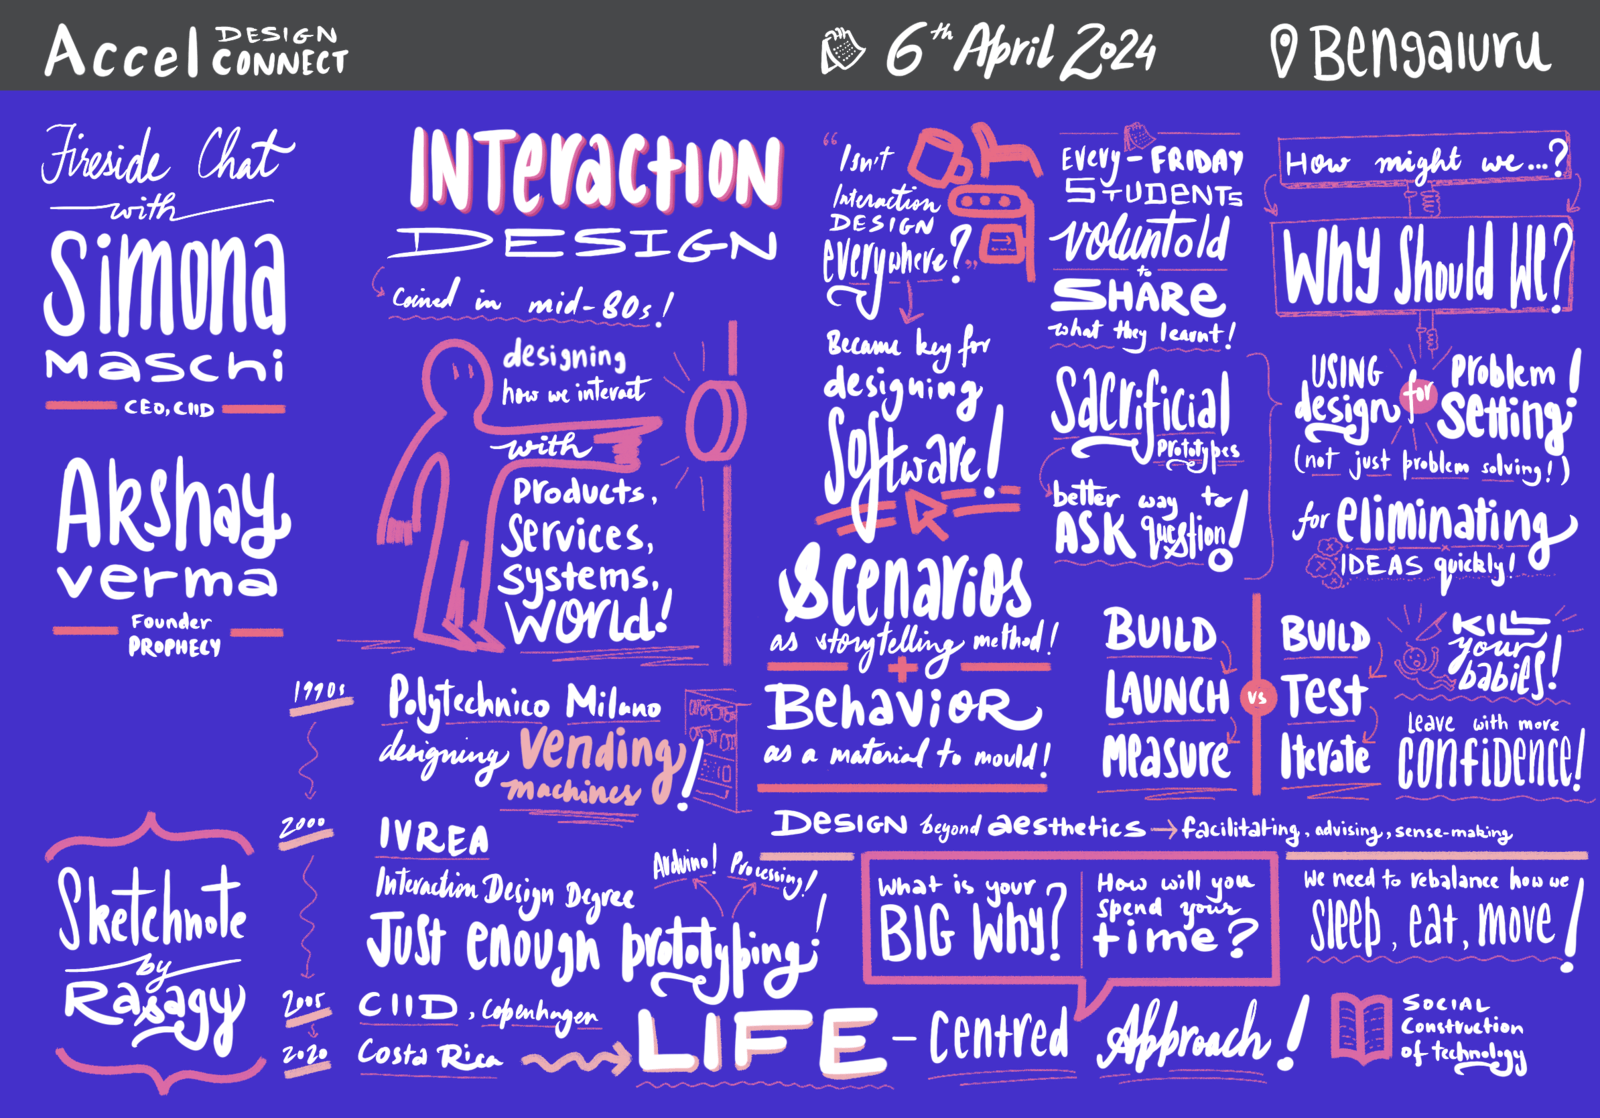 Accel DESIGN CONNECT
6th April 2024
Bengaluru
Fireside Chat
with
Simona
Maschi
CEO, CIID
Akshay
verma
Founder
PROPHECY
Sketchnote
by
Rasagy
INTeracTION
DESIGN
Coined in mid-80s!
designing
how we interact
with
Products,
Services,
Systems,
WORLD!
1990s
Polytechnico Milano
designing vending
machines!
2000
IVREA
Interaction Design Degree
Just enough prototyping!
Arduino! Processing!
2005
CIID, Copenhagen
2020
Costa Rica
LIFE - Centred Approach!
"Isn't
Interaction
DESIGN
everywhere?"
Became key for
designing
Software!
Scenarios
as storytelling method!
+
Behavior
as a material to mould!
Every-FRIDAY
STUDENTS
voluntold
to
SHARe
what they learnt!
Sacrificial
Prototypes
better way to
ASK question!
How might we...?
Why Should We?
USING
design
for
Problem
Setting!
(not just problem solving!)
for eliminating
IDEAS quickly!
BUILD
LAUNCH
Measure
VS
BUILD
Test
Iterate
KILL
your
babies!
Leave with more
confidence!
DesIGN beyond aesthetics → facilitating, advising, sense-making
What is your
BIG Why?
How will you
spend your
time?
We need to rebalance how we
sleep, eat, move!
SOCIAL
Construction
of technology